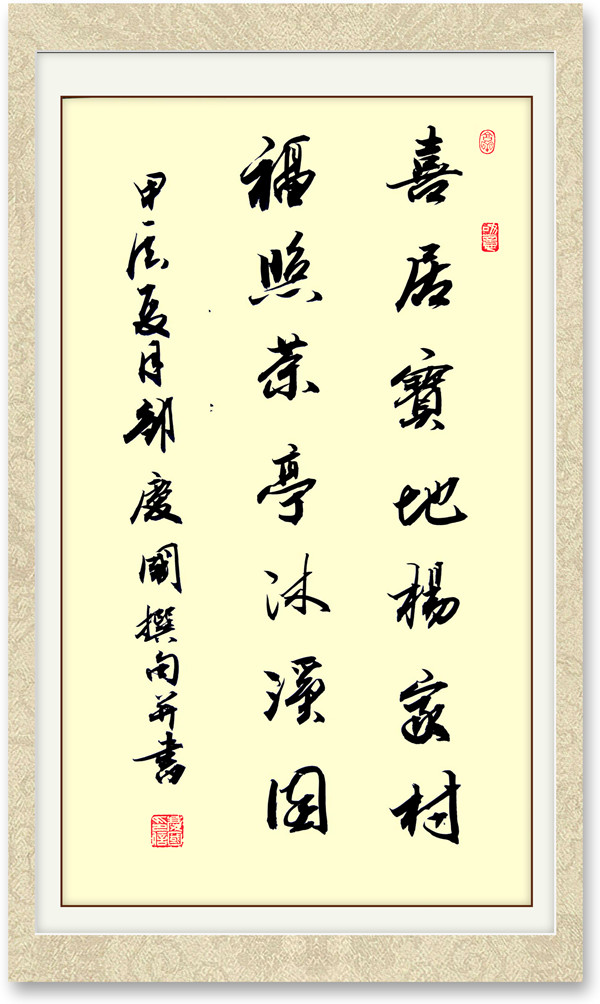 喜居寶地楊家村
福照茶亭沐溪
甲辰夏月慶國撰句并書